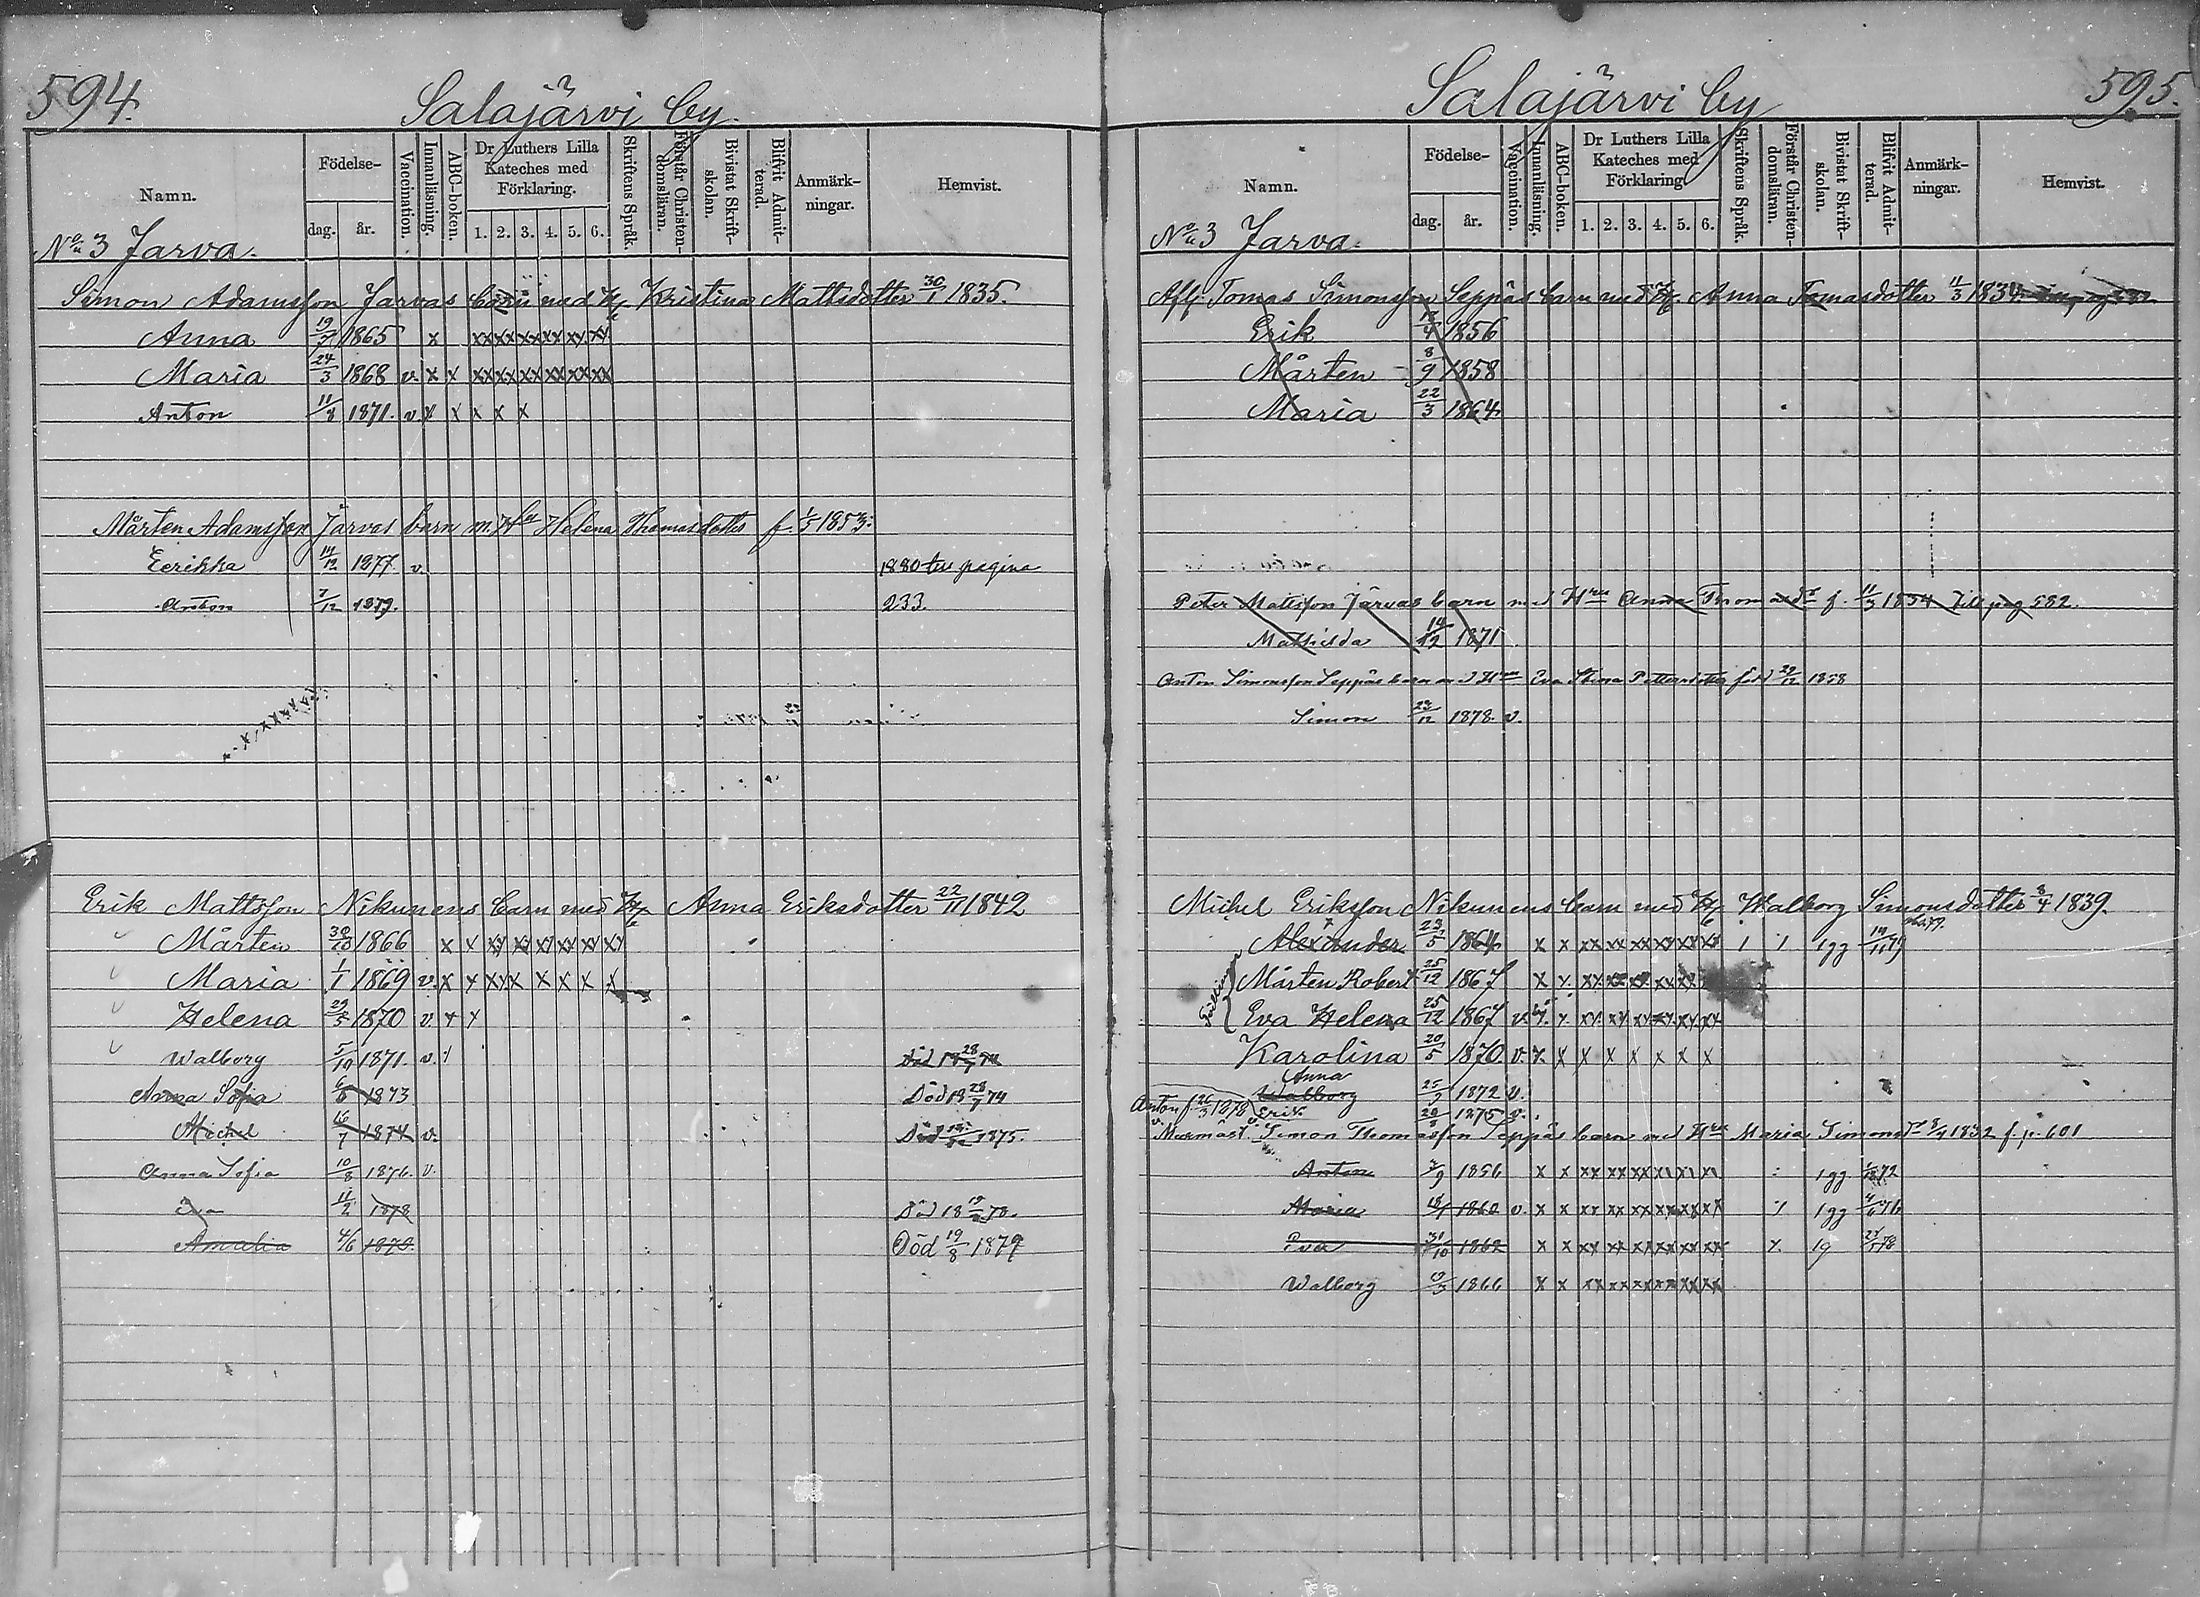 594.
Salajärvi by.
Namn.
Födelse-
dag. år.
Vaccination.
Innanläsning.
ABC-boken.
Dr Luthers Lilla Kateches med Förklaring.
1. 2. 3. 4. 5. 6.
Skriftens Språk.
Förstår Christendomsläran.
Bivistat Skriftskolan.
Blifvit Admitterad.
Anmärkningar.
Hemvist.
No 3 Jarva.
Simon Adamsson Jarvas barn med H. Kristina Mattsdotter 30/1 1835.
Anna 19/7 1865 x xx xx xx xx xx xx
Maria 24/3 1868 v. x x xx xx xx xx xx xx
Anton 11/8 1871. v x x x x x
Mårten Adamsson Järvas barn m. Hu Helena Thomasdotter f. 1/5 1853.
Eerikka 14/12 1877 v. 1880 till pagina
Anton 7/12 1879. 233.
Erik Mattsson Nikunens barn med H. Anna Eriksdotter 22/11 1842
Mårten 30/10 1866 x x xx xx xx xx xx xx
Maria 1/1 1869 v. x x xx x x x x x
Helena 29/5 1870 v. x x
Walborg 5/10 1871. v. Död 18 28/7 74
Anna Sofia 6/6 1873 Död 18 28/7 74
Michel 16/7 1874 v. Död 1875.
Anna Sofia 10/8 1876. v.
Eva 11/2 1878 Död 18 78.
Amalia 4/6 1879. Död 19/8 1879
595.
Salajärvi by
Namn.
Födelse-
dag. år.
Vaccination.
Innanläsning.
ABC-boken.
Dr Luthers Lilla Kateches med Förklaring.
1. 2. 3. 4. 5. 6.
Skriftens Språk.
Förstår Christendomsläran.
Bivistat Skriftskolan.
Blifvit Admitterad.
Anmärkningar.
Hemvist.
No 3 Jarva.
Aff. Tomas Simonsson Seppäs barn med H. Anna Tomasdotter 11/3 1834
Erik 1856
Mårten 8/9 1858
Maria 22/3 1864
Peter Matsson Järvas barn med Hru Anna Thomasdr f. 11/3 1834 till pag 582.
Mathilda 14/12 1871
Anton Simonsson Seppäs barn med Hru Eva Stina Pettersdotter född 29/12 1858
Simon 23/12 1878. v.
Michel Eriksson Nikunens barn med H. Walborg Simonsdotter 8/4 1839.
Alexander 23/5 1864 x x xx xx xx xx xx xx 1 1 1gg 19/11 79
Mårten Robert 25/12 1867 x x xx xx xx xx xx
Eva Helena 25/12 1867 v. x xx xx xx xx xx xx
Karolina 20/5 1870 v. x x x x x x x x
Anna
Walborg 25/9 1872 v.
Anton f. 26/3 1878 Erik 1875 v.
Murmäst. Simon Thomasson Seppäs barn med Hru Maria Simonsdr 8/4 1832 f. p. 601
Anton 7/9 1856 x x xx xx xx xx xx xx 1gg 72
Maria 1860 v. x x xx xx xx xx xx xx 1gg 76
Eva 31/10 1862 x x xx xx xx xx xx xx x 1g 78
Walborg 1866 x x xx xx xx xx xx xx